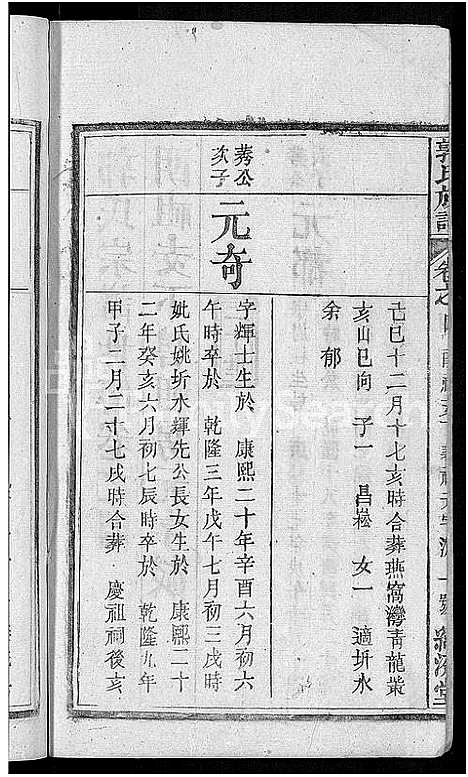 郭氏族譜
己巳十二月十七亥時合葬燕窩灣青龍嘴
亥山巳向 子一 昌崧 女一 適圻水
余郁
莠公次子 元奇
字輝士生於 康熙二十年辛酉六月初六
午時卒於 乾隆三年戊午七月初三戌時
妣氏姚圻水輝先公長女生於 康熙二十
二年癸亥六月初七辰時卒於 乾隆九年
甲子二月二十七戌時合葬 慶祖祠後亥